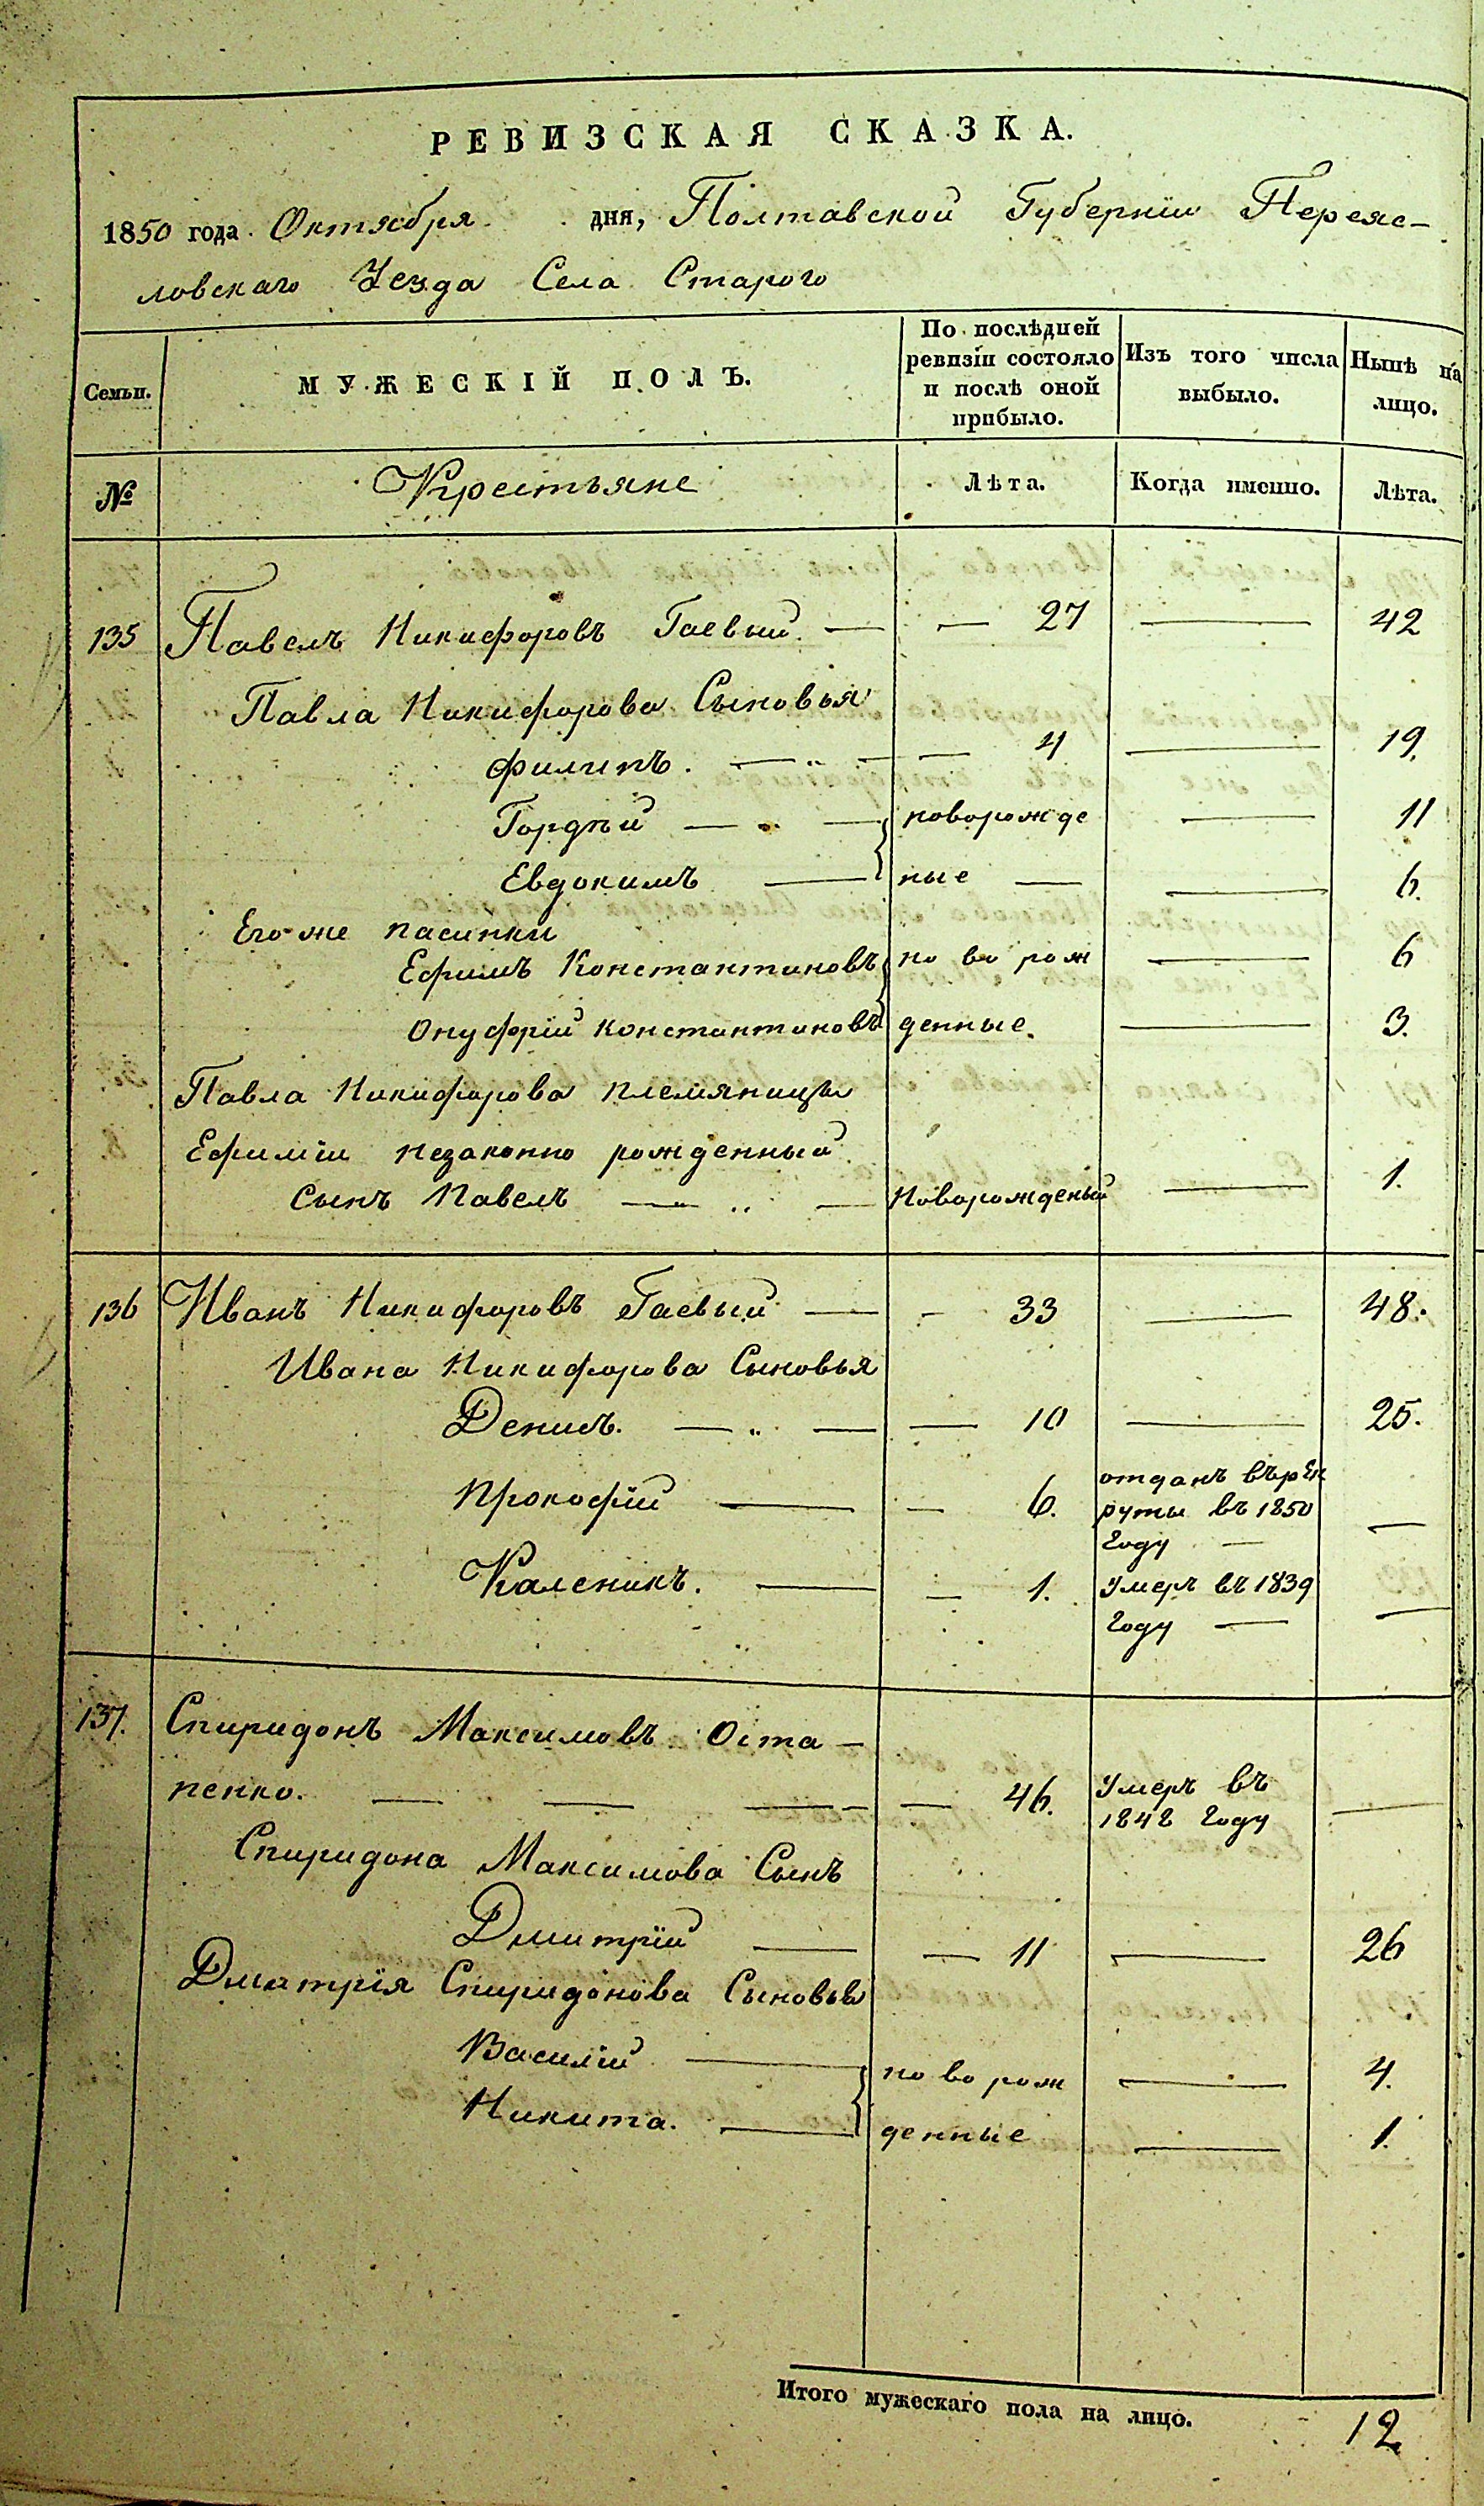 РЕВИЗСКАЯ СКАЗКА.
1850 года Октября дня, Полтавской Губернии Переяс-
ловскаго Уезда Села Старого
Семьи.
МУЖЕСКІЙ ПОЛЪ.
По послѣдней ревизіи состояло и послѣ оной прибыло.
Изъ того числа выбыло.
Нынѣ на лицо.
№ Крестьяне Лѣта. Когда именно. Лѣта.
135 Павелъ Никифоровъ Гаевый — — 27 — 42
Павла Никифорова Сыновья
Филипъ. — „ — — 4 — 19.
Гордѣй — „ — новорожде — 11
Евдокимъ — ные — — 6.
Его же пасинки
Ефимъ Константиновъ новорож — 6
Онуфрій Константиновъ денные. — 3.
Павла Никифорова племяницы
Ефиміи незаконно рожденный
Сынъ Павелъ — „ — Новорожденый — 1.
136 Иванъ Никифоровъ Гаевый — — 33 — 48.
Ивана Никифорова Сыновья
Денисъ. — „ — — 10 — 25.
Прокофій — — 6. отданъ въ рек
руты въ 1850
году — —
Каленикъ. — — 1. Умеръ въ 1839
году — —
137. Спиридонъ Максимовъ Оста-
пенко. — — — — 46. Умеръ въ
1848 году —
Спиридона Максимова Сынъ
Дмитрій — — 11 — 26
Дмитрія Спиридонова Сыновья
Василій — новорож — 4.
Никита. — денные — 1.
Итого мужескаго пола на лицо. 12